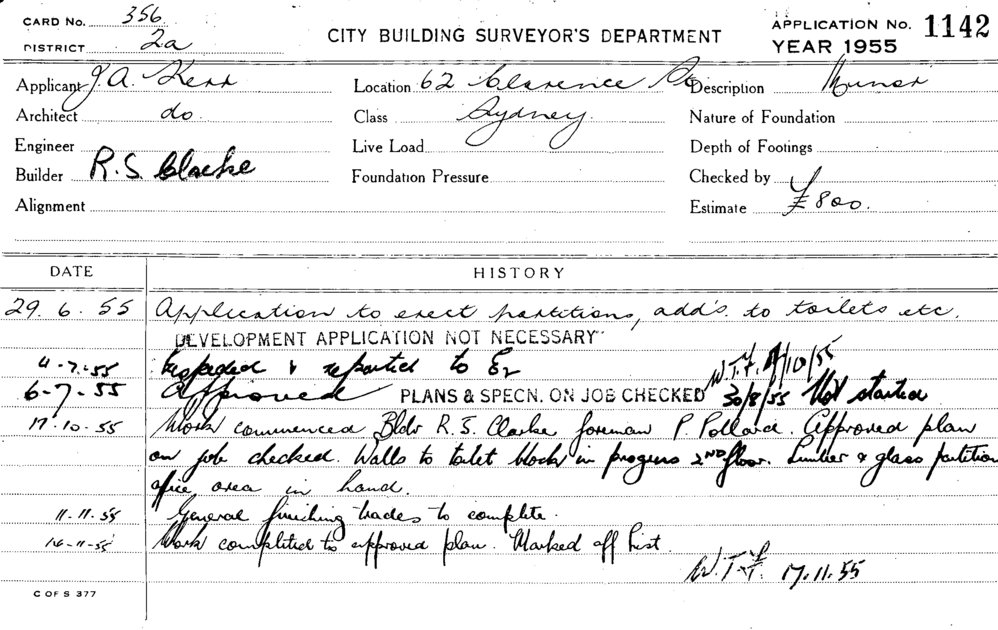 CARD No. 356
DISTRICT 2a
CITY BUILDING SURVEYOR'S DEPARTMENT
APPLICATION No. 1142
YEAR 1955
Applicant J.A. Kerr
Location 62 Clarence St
Description Minor
Architect do.
Class Sydney
Nature of Foundation
Engineer
Live Load
Depth of Footings
Builder R.S. Clarke
Foundation Pressure
Checked by
Alignment
Estimate £800.
DATE HISTORY
29. 6. 55 Application to erect partitions, add's. to toilets etc.
DEVELOPMENT APPLICATION NOT NECESSARY
4-7-55 Inspected & reported to
W.T.F. 4/10/55
6-7-55 Approved PLANS & SPECN. ON JOB CHECKED 30/8/55 Not started
17.10.55 Work commenced Bldr R.S. Clarke foreman P Pollard. Approved plan
on job checked. Walls to toilet block in progress 2ND floor. Timber & glass partition
office area in hand.
11.11.55 General finishing trades to complete.
16-11-55 Work completed to approved plan. Marked off list.
W.T.F. 17.11.55
C OF S 377